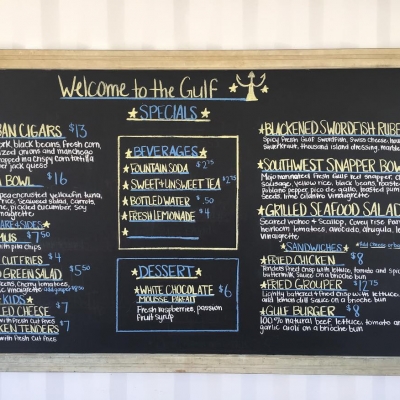 Welcome to the Gulf
SPECIALS
BAN CIGARS $13
pork, black beans, fresh corn,
onions and manchego
wrapped in a crispy corn tortilla
BOWL $16
crusted yellowfin tuna,
rice, seaweed salad, carrots,
pickled cucumber, soy
vinaigrette
SIDES
MUS $7.50
with pita chips
CUT FRIES $4
GREEN SALAD $5.50
greens, cherry tomatoes,
vinaigrette
KIDS
CHEESE $7
with Fresh Cut Fries
CKEN TENDERS $7
with Fresh Cut Fries
BEVERAGES
FOUNTAIN SODA $2.75
SWEET & UNSWEET TEA $2.75
BOTTLED WATER .50
FRESH LEMONADE $4
DESSERT
WHITE CHOCOLATE $6
MOUSSE PARFAIT
Fresh raspberries, passion
fruit syrup
BLACKENED SWORDFISH RUBE
Spicy fresh Gulf swordfish, Swiss cheese, house
sauerkraut, thousand island dressing, marble
SOUTHWEST SNAPPER BOW
fresh Gulf red snapper,
sausage, yellow rice, black beans, roasted
Poblano pepper pico de gallo, toasted pum
seeds, lime cilantro vinaigrette
GRILLED SEAFOOD SALAD
Seared Wahoo & Scallop,
heirloom tomatoes, avocado, arugula,
vinaigrette
SANDWICHES
Add cheese or
FRIED CHICKEN $8
Tenders fried crisp with lettuce, tomato and
buttermilk sauce on a brioche bun
FRIED GROUPER $12.75
Lightly battered & fried crisp with lettuce,
and lemon dill sauce on a brioche bun
GULF BURGER $8
100% natural beef, lettuce, tomato and
garlic aioli on a brioche bun